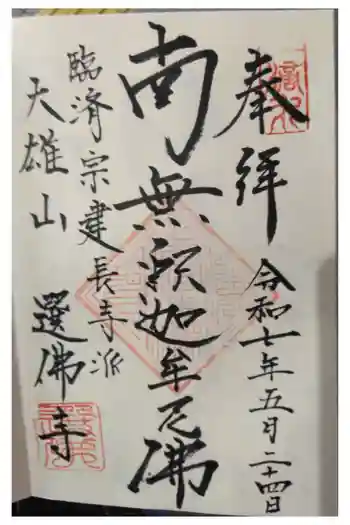 奉拝
令和七年五月二十四日
南無釈迦牟尼佛
臨済宗建長寺派
大雄山
選佛寺